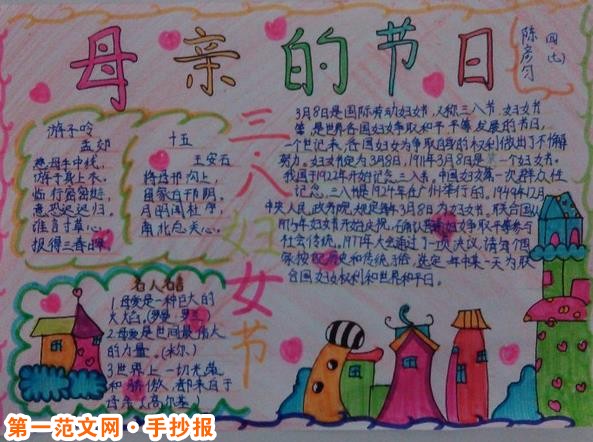 母亲的节日
四(七)
陈彦匀
三八妇女节
游子吟
孟郊
慈母手中线,
游子身上衣。
临行密密缝,
意恐迟迟归。
谁言寸草心,
报得三春晖。
十五
王安石
将母邗沟上,
留家白邗阴。
月明闻杜宇,
南北总关心。
3月8日是国际劳动妇女节,又称三八节 妇女节
等,是世界各国妇女争取和平,平等,发展的节日,
一个世纪来,各国妇女为争取自身的权利做出了不懈
努力。妇女节定为3月8日,1911年3月8日是第一个妇女节。
我国于1922年开始记念三八节。中国妇女第一次群众性
记念三八节是1924年在广州举行的。1949年12月
中央人民政务院规定每3月8日为妇女节。联合国从
1975年妇女节开始庆祝,
社会传统。1977年大会通过了一项决议,请每个国
家按照历史和传统习俗,选定一年中某一天为联
合国妇女权利和世界和平日。
名人名言
1.母爱是一种巨大的
火焰(罗曼·罗兰)
2.母爱是世间最伟大
的力量。(米尔)
3.世界上一切光荣
和骄傲,都来自于
母亲(高尔基)
第一范文网·手抄报